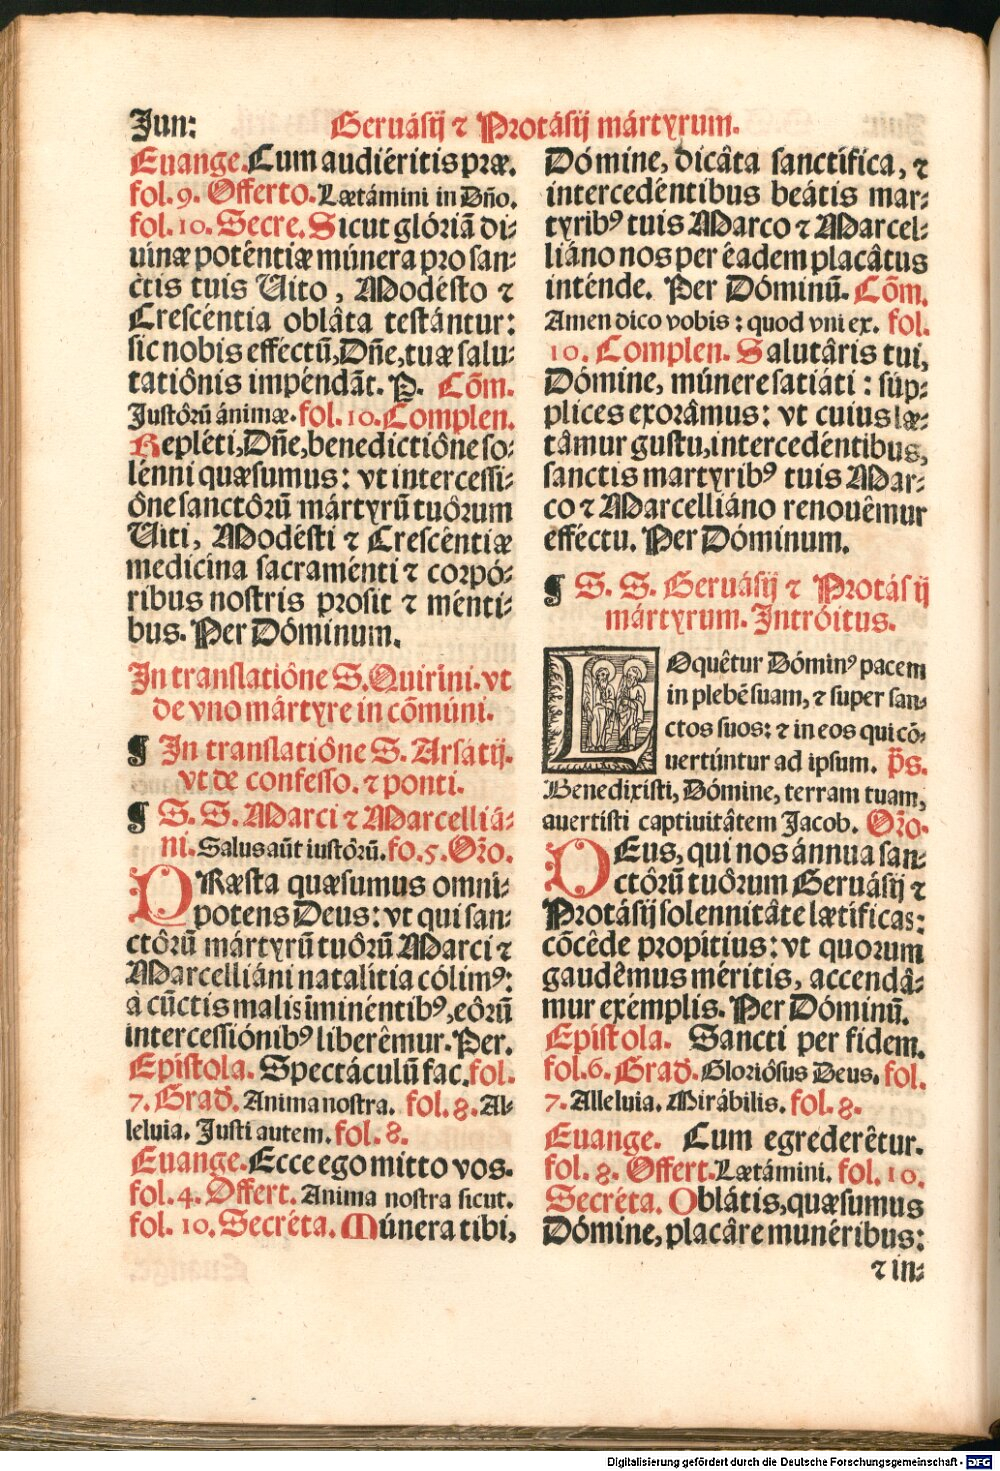 Jun: Geruásij ⁊ Protásij mártyrum.
Euange. Cum audiéritis præ.
fol. 9. Offerto. Lætámini in Dño.
fol. 10. Secre. Sicut glóriã di-
uinæ poténtiæ múnera pro san-
ctis tuis Uito, Modésto ⁊
Crescéntia oblâta testántur:
sic nobis efféctũ, Dñe, tuæ salu-
tatiônis impéndãt. P. Cõm.
Justórũ ánimæ. fol. 10. Complen.
Repléti, Dñe, benedictiône so-
lénni quæsumus: vt intercessi-
ône sanctôrũ mártyrũ tuôrum
Uiti, Modésti ⁊ Crescêntiæ
medicina sacraménti ⁊ corpó-
ribus nostris prosit ⁊ ménti-
bus. Per Dóminum.
In translatiône S. Quirini. vt
de vno mártyre in cõmúni.
¶ In translatiône S. Arsatij.
vt de confesso. ⁊ ponti.
¶ S. S. Marci ⁊ Marcelliá-
ni. Salus aũt iustôrũ. fo. 5. Orõ.
PRæsta quæsumus omni-
potens Deus: vt qui san-
ctôrũ mártyrũ tuôrũ Marci ⁊
Marcelliáni natalítia cólimꝰ:
à cũctis malis ĩminéntibꝰ, eôrũ
intercessiónibꝰ liberêmur. Per.
Epistola. Spectáculũ fac. fol.
7. Grad. Anima nostra. fol. 8. Al-
leluia. Justi autem. fol. 8.
Euange. Ecce ego mitto vos.
fol. 4. Offert. Anima nostra sicut.
fol. 10. Secréta. Múnera tibi,
Dómine, dicâta sanctífica, ⁊
intercedéntibus beátis mar-
tyribꝰ tuis Marco ⁊ Marcel-
liáno nos per éadem placâtus
inténde. Per Dóminũ. Cõm.
Amen dico vobis: quod vni ex. fol.
10. Complen. Salutâris tui,
Dómine, múnere satiáti: súp-
plices exorâmus: vt cuius læ-
tâmur gustu, intercedéntibus,
sanctis martyribꝰ tuis Mar-
co ⁊ Marcelliáno renouêmur
efféctu. Per Dóminum.
¶ S. S. Geruásij ⁊ Protásij
mártyrum. Intróitus.
LOquêtur Dóminꝰ pacem
in plebẽ suam, ⁊ super san-
ctos suos: ⁊ in eos qui cõ-
uertúntur ad ipsum. Ps.
Benedixisti, Dómine, terram tuam,
auertisti captiuitâtem Jacob. Orõ.
DEus, qui nos ánnua san-
ctôrũ tuôrum Geruásij ⁊
Protásij solennitâte lætíficas:
cõcêde propítius: vt quorum
gaudêmus méritis, accendâ-
mur exémplis. Per Dóminũ.
Epistola. Sancti per fidem.
fol. 6. Grad. Gloriôsus Deus. fol.
7. Alleluia. Mirábilis. fol. 8.
Euange. Cum egrederêtur.
fol. 8. Offert. Lætámini. fol. 10.
Secréta. Oblátis, quæsumus
Dómine, placâre munéribus:
⁊ in-
Digitalisierung gefördert durch die Deutsche Forschungsgemeinschaft - DFG